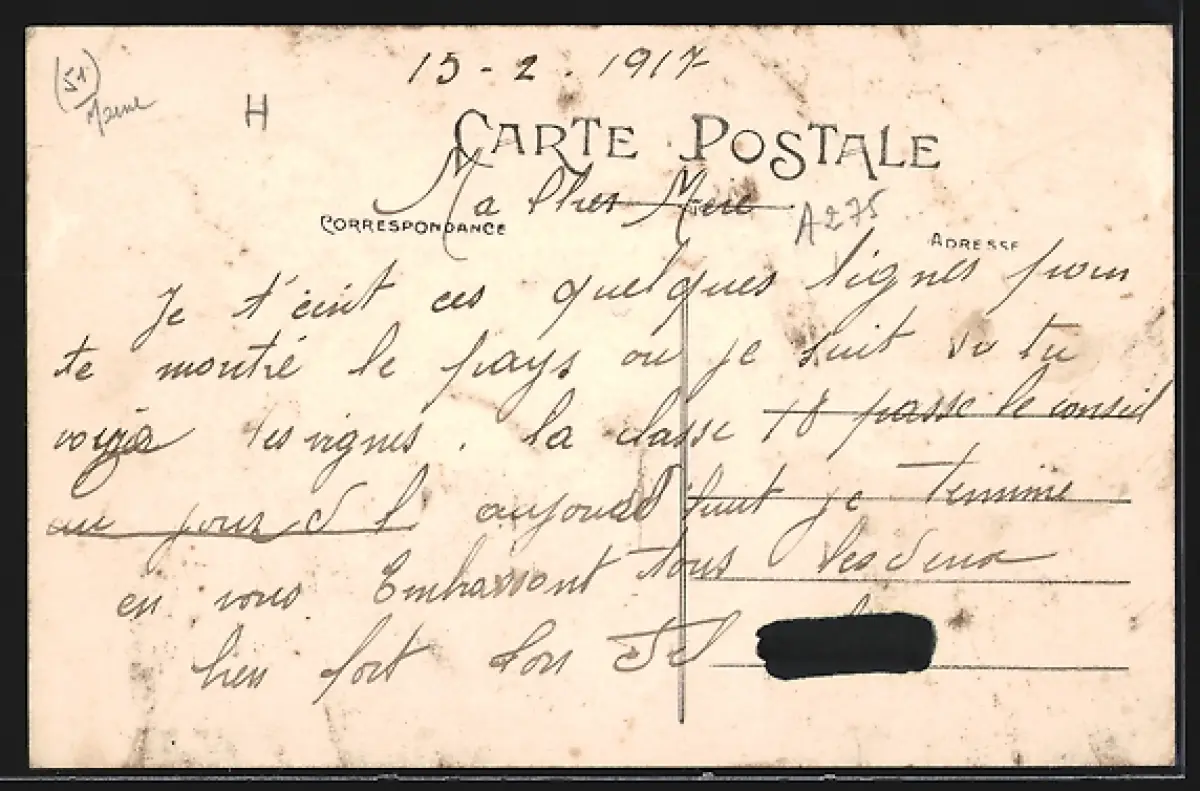 (51)
Marne
H
15 - 2 . 1917
CARTE POSTALE
Ma Cher Mere
A275
CORRESPONDANCE
ADRESSE
Je t'ecrit ces quelques lignes pour
te montré le pays ou je suit si tu
voiya les vignes . la classe 18 passe le conseil
au jour d h aujourd huit je Termine
en vous Embrassant tous les deux
bien fort ton